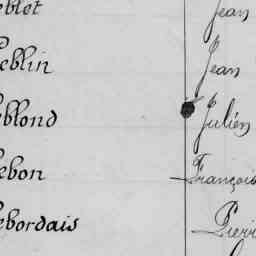 eblet Jean
eblin Jean
eblond Julien
ebon François
ebordais Pierr